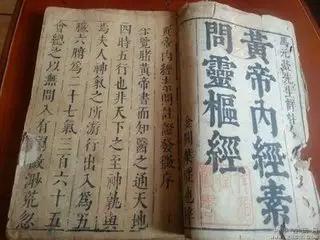 黃帝內經素
問靈樞經
黃帝內經素問註證發微序
余覽黃帝書而知醫之通天地
四時五行也非天下之至神孰與
爲夫人神氣之所游行出入爲五
臟六腑爲二十七氣三百六十五
會總之以無間入有